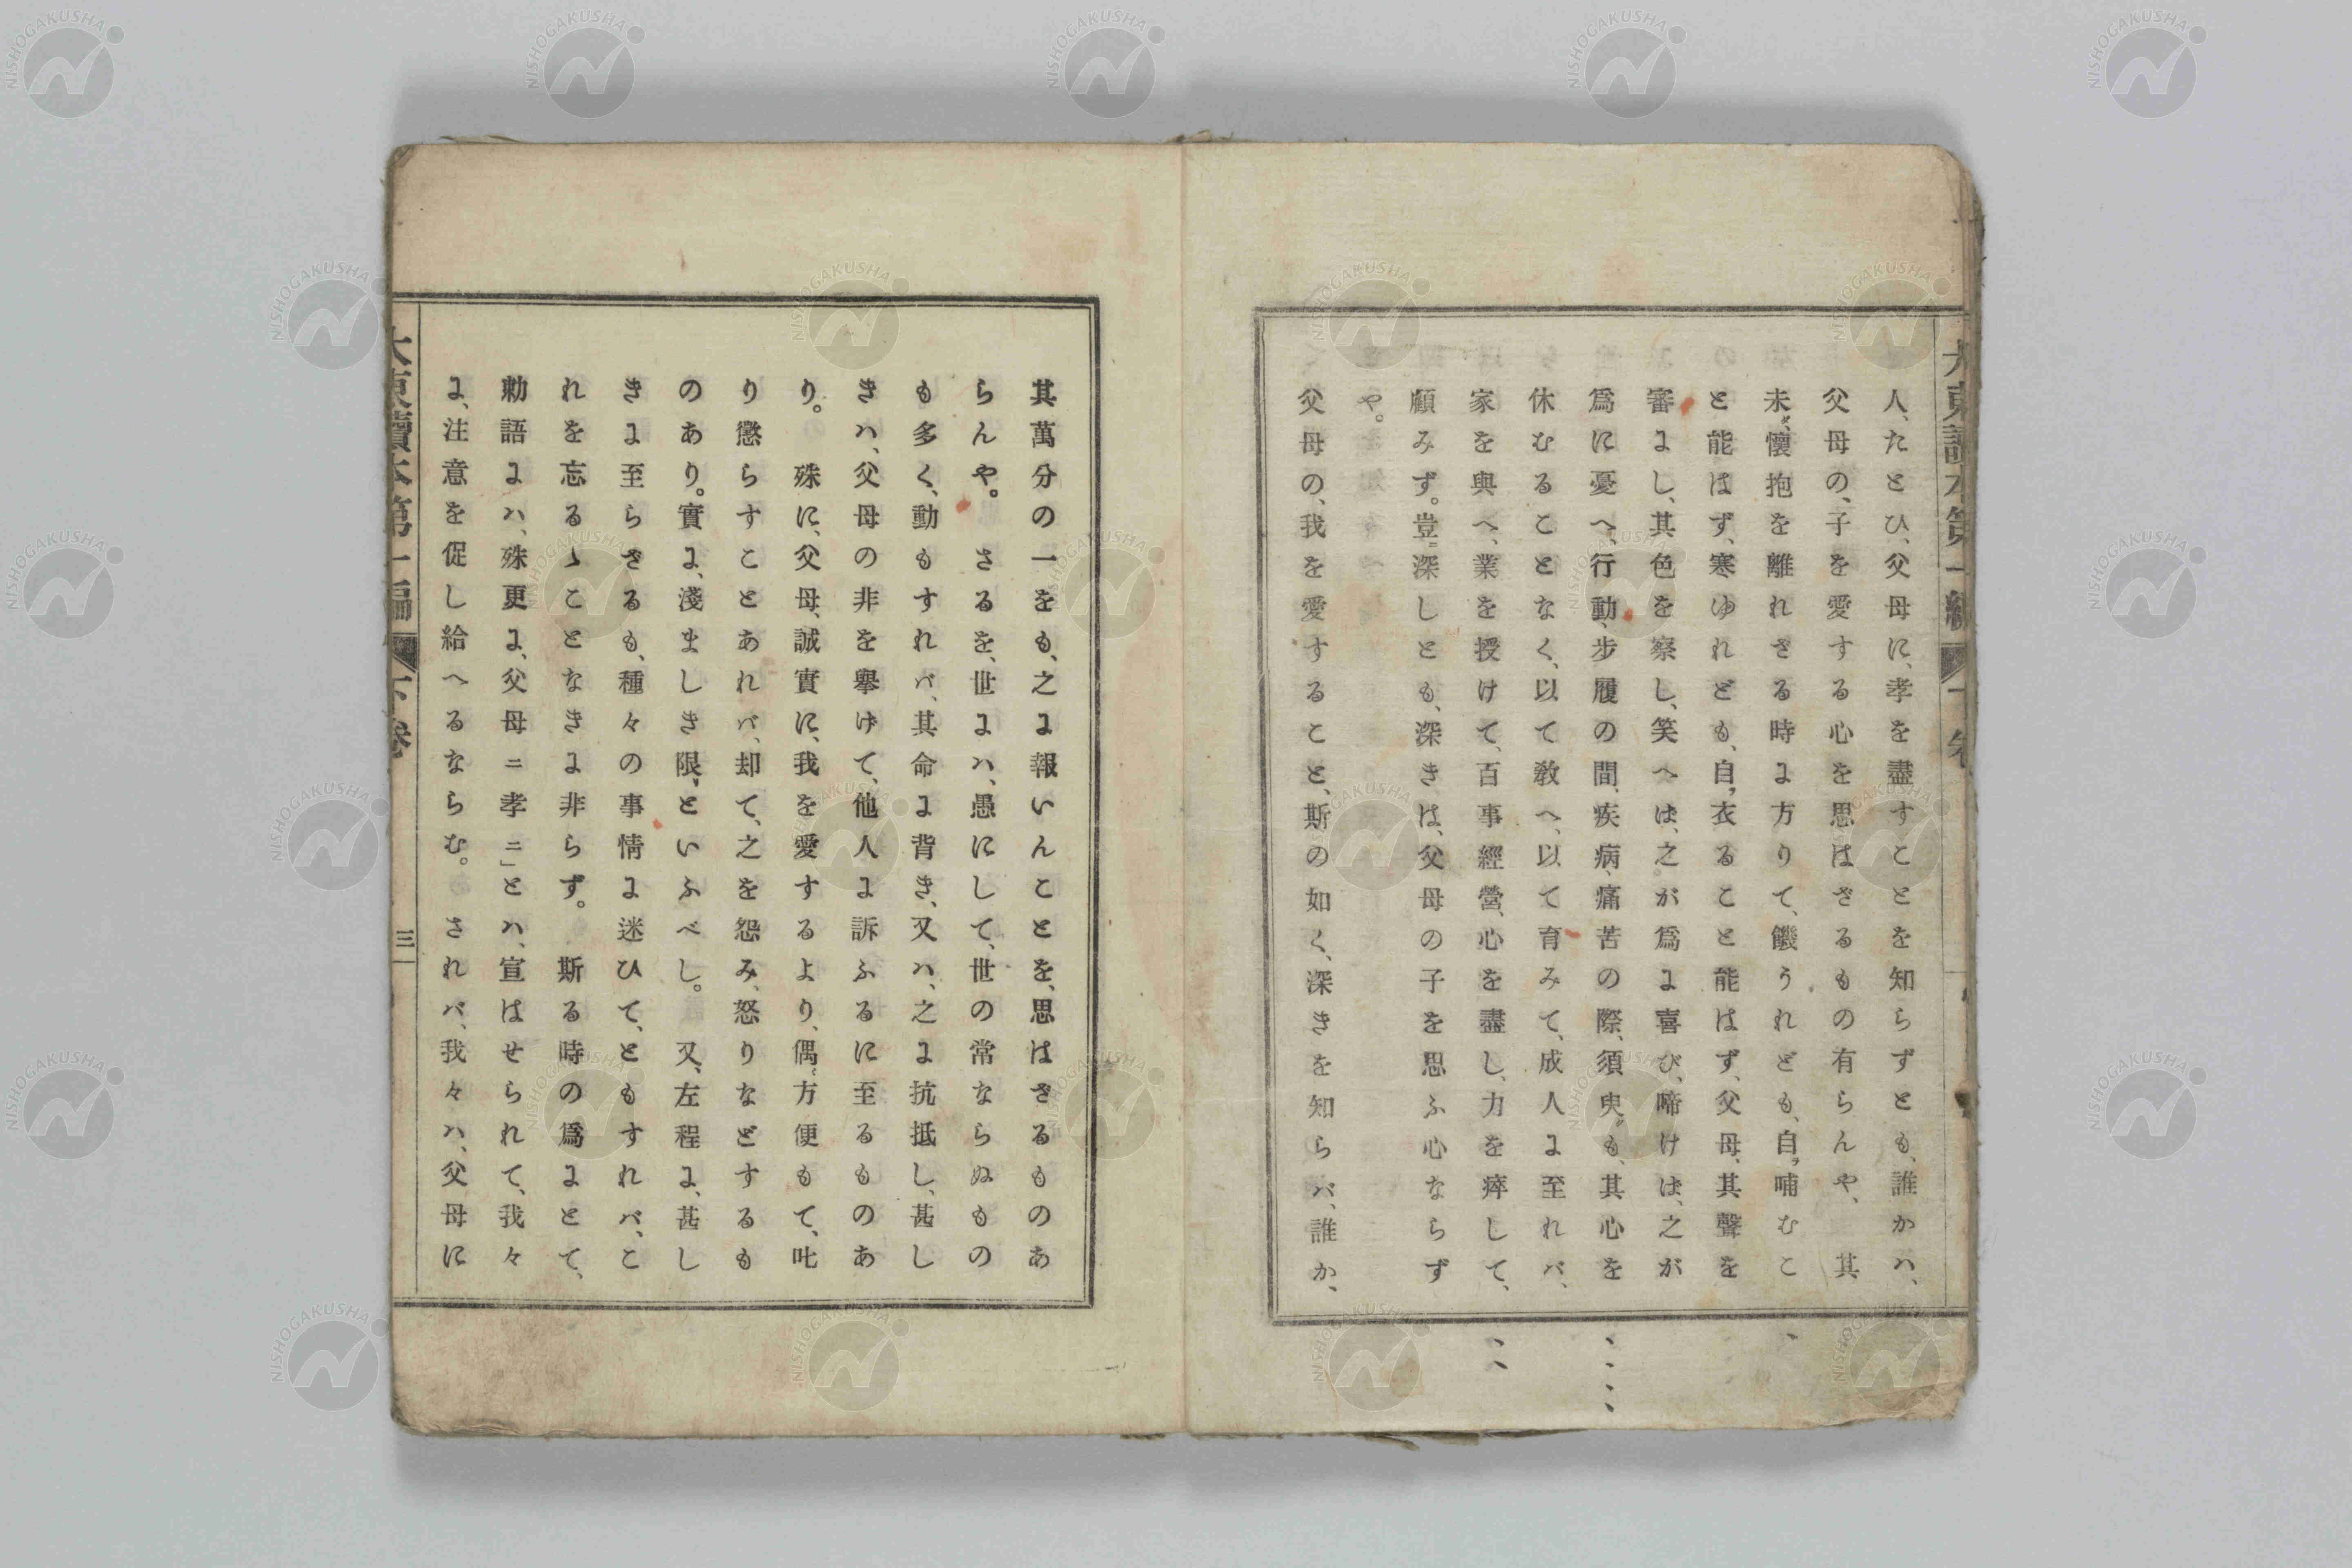 人、たとひ、父母に、孝を盡すことを知らずとも、誰かハ、
父母の、子を愛する心を思はざるもの有らんや、其
未ダ、懷抱を離れざる時に方りて、饑うれども、自ラ哺むこ
と能はず、寒ゆれども、自ラ衣ること能はず、父母、其聲を
審にし、其色を察し、笑へは、之が爲に喜び、啼けは、之が
爲に憂へ、行動、步履の間、疾病、痛苦の際、須臾も、其心を
休むることなく、以て敎へ、以て育みて、成人に至れバ、
家を與へ、業を授けて、百事經營、心を盡し、力を瘁して、
顧みず。豈ニ深しとも、深きは、父母の子を思ふ心ならず
や。
父母の、我を愛すること、斯の如く、深きを知らバ、誰か、
其萬分の一をも、之に報いんことを、思はざるものあ
らんや。さるを、世にハ、愚にして、世の常ならぬもの
も多く、動もすれバ、其命に背き、又ハ、之に抗抵し、甚し
きハ、父母の非を擧げて、他人に訴ふるに至るものあ
り。殊に、父母、誠實に、我を愛するより、偶〻方便もて、叱
り懲らすことあれバ、却て、之を怨み、怒りなどするも
のあり。實に、淺ましき限、といふべし。又、左程に、甚し
きに至らざるも、種々の事情に迷ひて、ともすれバ、こ
れを忘るゝことなきに非らず。斯る時の爲にとて、
勅語にハ、殊更に、父母ニ孝ニ」とハ、宣はせられて、我々
に、注意を促し給へるならむ。されバ、我々ハ、父母に
大東讀本第一編
下卷
三
NISHOGAKUSHA